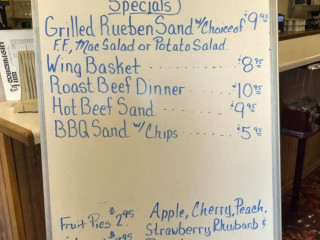 Specials)
Grilled Rueben Sand w/Choice of $9.95
F.F, Mac Salad or Potato Salad
Wing Basket -------- $8.95
Roast Beef Dinner ---- $10.95
Hot Beef Sand ------- $9.95
BBQ Sand w/ Chips ------ $5.95
Fruit Pies $2.95 Apple, Cherry, Peach,
Strawberry Rhubarb &